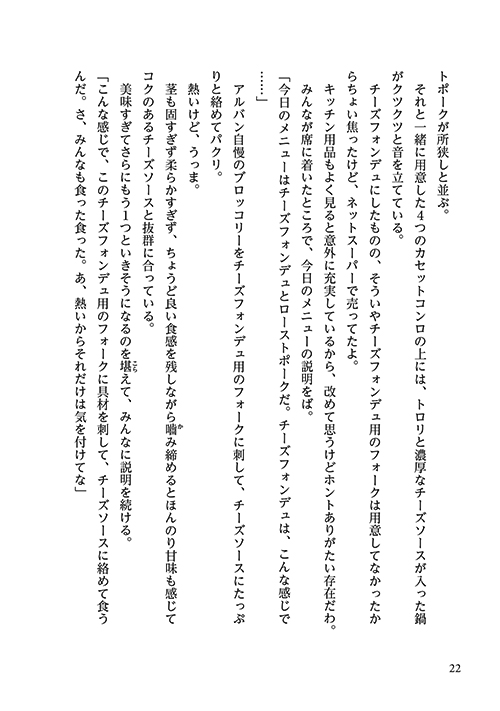 トポークが所狭しと並ぶ。
　それと一緒に用意した４つのカセットコンロの上には、トロリと濃厚なチーズソースが入った鍋
がクツクツと音を立てている。
　チーズフォンデュにしたものの、そういやチーズフォンデュ用のフォークは用意してなかったか
らちょい焦ったけど、ネットスーパーで売ってたよ。
　キッチン用品もよく見ると意外に充実しているから、改めて思うけどホントありがたい存在だわ。
　みんなが席に着いたところで、今日のメニューの説明をば。
「今日のメニューはチーズフォンデュとローストポークだ。チーズフォンデュは、こんな感じで
……」
　アルバン自慢のブロッコリーをチーズフォンデュ用のフォークに刺して、チーズソースにたっぷ
りと絡めてパクリ。
　熱いけど、うっま。
　茎も固すぎず柔らかすぎず、ちょうど良い食感を残しながら嚙み締めるとほんのり甘味も感じて
コクのあるチーズソースと抜群に合っている。
　美味すぎてさらにもう１つといきそうになるのを堪えて、みんなに説明を続ける。
「こんな感じで、このチーズフォンデュ用のフォークに具材を刺して、チーズソースに絡めて食う
んだ。さ、みんなも食った食った。あ、熱いからそれだけは気を付けてな」
22